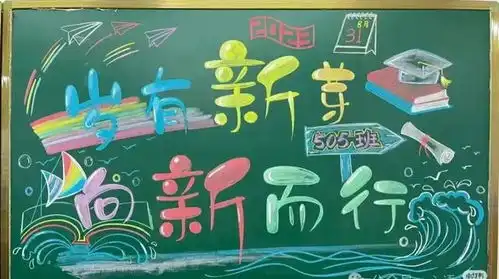 2023
8月
31
岁有新芽
505班
向新而行